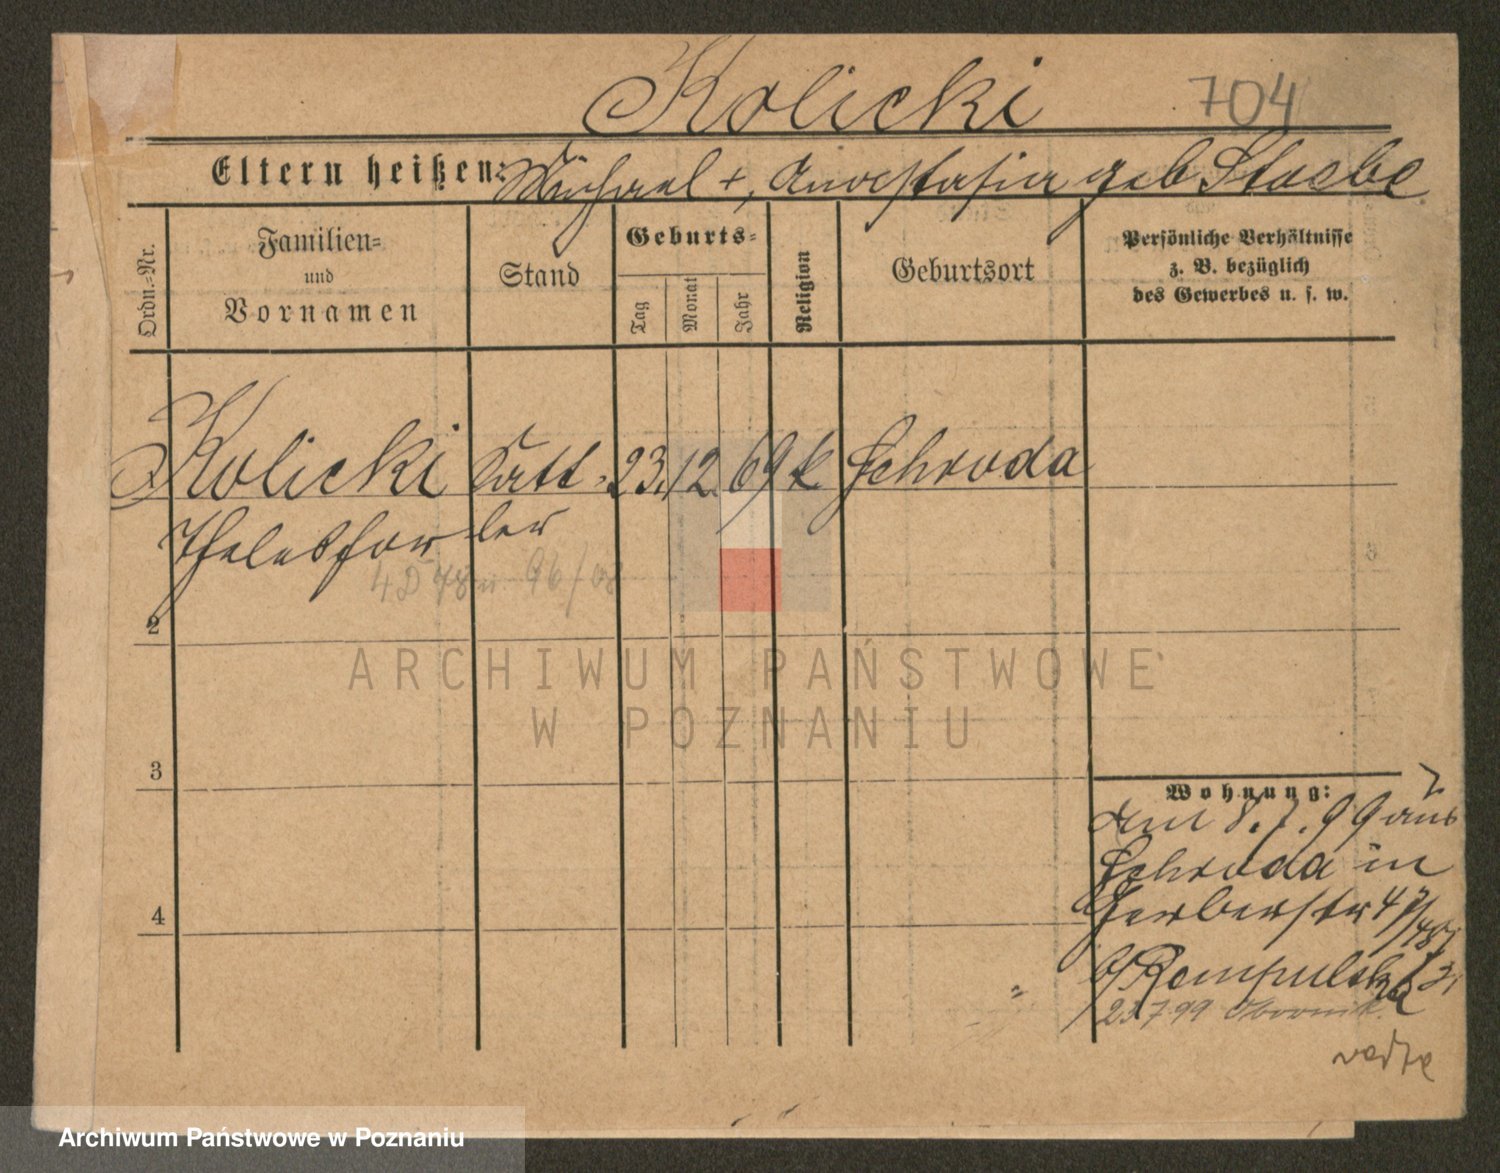 Kolicki 704
Eltern heißen: Michael +, Anastasia geb Stacbe
Ordn.-Nr.
Familien=
und
Vornamen
Stand
Geburts=
Tag
Monat
Jahr
Religion
Geburtsort
Persönliche Verhältnisse
z. B. bezüglich
des Gewerbes u. s. w.
Kolicki Satt= 23. 12. 69 k Schroda
Thelesfor ler
4 D 48 u. 96/08
2
3
4
Wohnung:
am 8. 7. 99 aus
Schroda in
Gerberstr 47/48
b/
23 7 99 Obornik.
ARCHIWUM PAŃSTWOWE
W POZNANIU
Archiwum Państwowe w Poznaniu